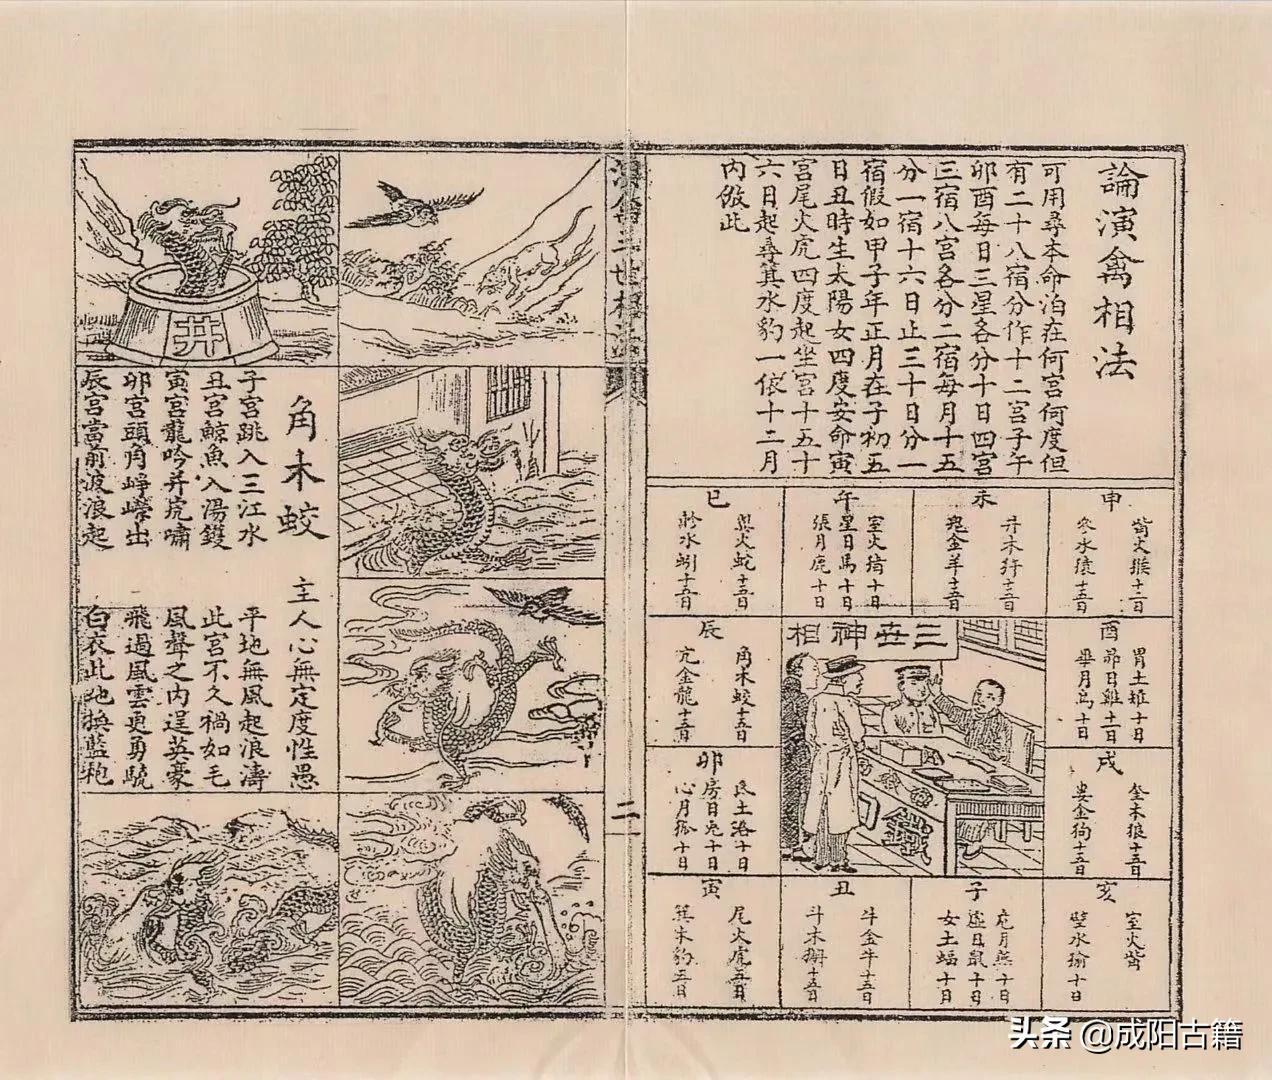 論演禽相法
可用尋本命泊在何宮何度但
有二十八宿分作十二宮子午
卯酉每日三星各分十日四宮
三宿八宮各分二宿每月十五
分一宿十六日止三十日分一
宿假如甲子年正月在子初五
日丑時生太陽女四度安命寅
宮尾火虎四度起坐宮十五十
六日起尋箕水豹一依十二月
內倣此
申
觜火猴十五日
參水猿十五日
未
井木犴十五日
鬼金羊十五日
午
星日馬十日
張月鹿十日
巳
翼火蛇十五日
軫水蚓十五日
酉
胃土雉十日
昴日雞十一日
畢月烏十日
三世神相
辰
角木蛟十五日
亢金龍十五日
戌
奎木狼十五日
婁金狗十五日
卯
氐土洛十日
房日兔十日
心月狐十日
亥
室火
壁水𤟹十日
子
危月燕十日
虛日鼠十日
女土蝠十日
丑
牛金牛十五日
斗木獬十五日
寅
尾火虎五日
箕木豹五日
演禽三世相法
二
井
角木蛟
主人心無定度性愚
子宮跳入三江水
平地無風起浪濤
丑宮鯨魚入湯鑊
此宮不久禍如毛
寅宮龍吟并虎嘯
風聲之內逞英豪
卯宮頭角崢嶸出
飛過風雲更勇驍
辰宮當前波浪起
白衣此地換藍袍
头条 @成阳古籍